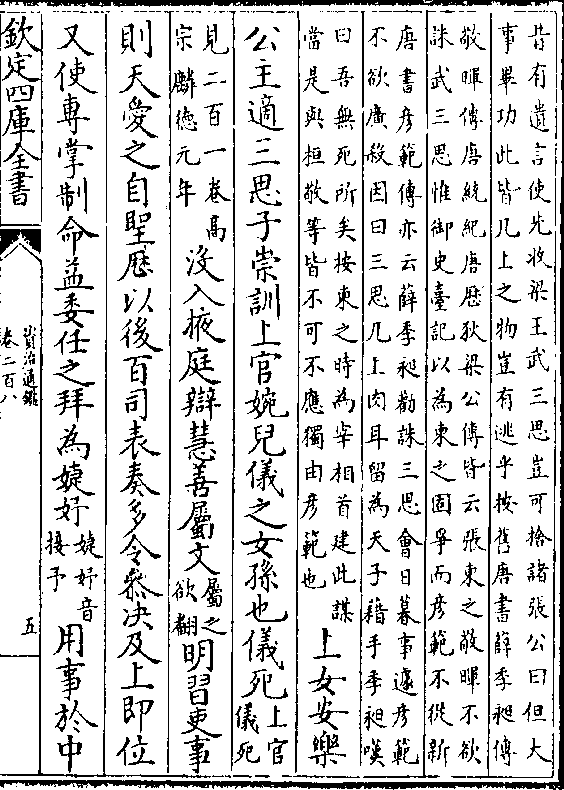 昔有遺言使先收梁王武三思豈可捨諸張公曰但大
事畢功此皆几上之物豈有逃乎按舊唐書薛季昶傳
敬暉傳唐統紀唐歷狄梁公傳皆云張柬之敬暉不欲
誅武三思惟御史臺記以為柬之固爭而彦範不從新
唐書彦範傳亦云薛季昶勸誅三思會日暮事遽彦範
不欲廣殺因曰三思几上肉耳留為天子藉手季昶嘆
曰吾無死所矣按柬之時為宰相首建此謀
當是與桓敬等皆不可不應獨由彦範也
上女安樂
公主適三思子崇訓上官婉兒儀之女孫也儀死
上官
儀死
見二百一卷高
宗麟德元年
沒入掖庭辯慧善屬文
屬之
欲翻
明習吏事
則天愛之自聖歴以後百司表奏多令參决及上即位
又使專掌制命益委任之拜為婕妤
婕妤音
接予
用事於中
欽定四庫全書
資治通鑑
卷二百八
五